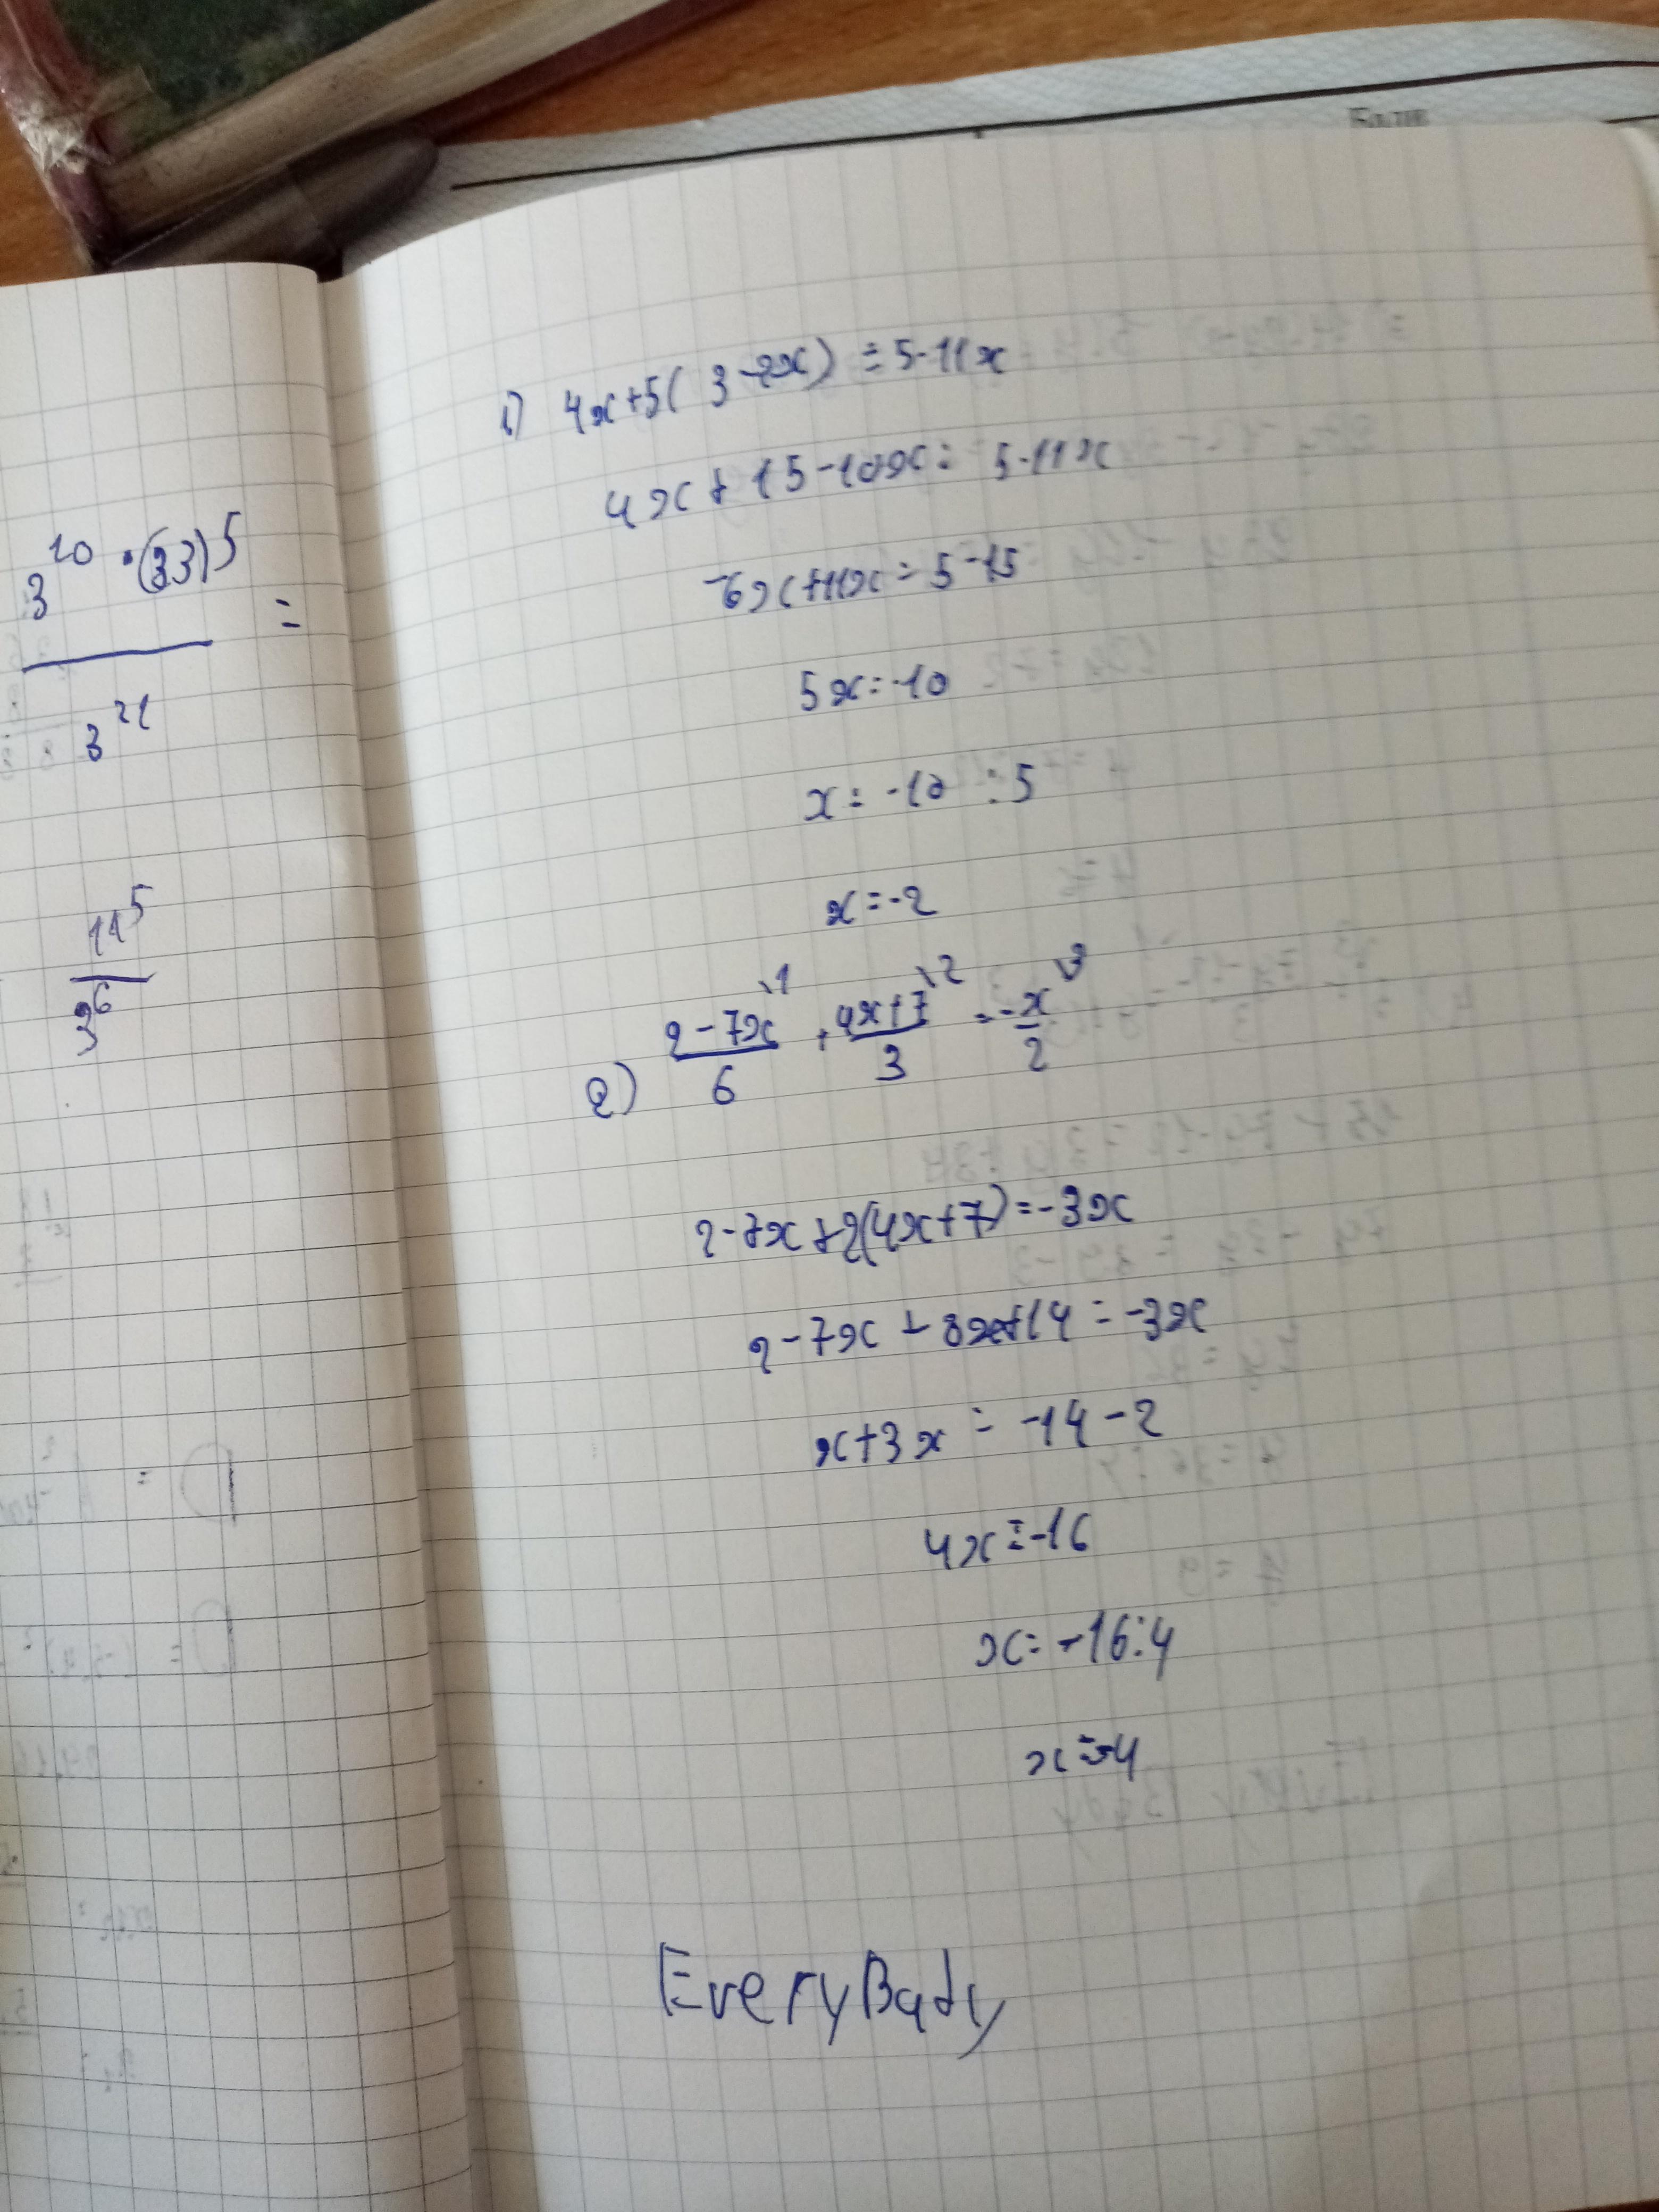 3^10 · (33)^5 / 3^21 =
11^5 / 3^6
1) 4x+5(3-2x)=5-11x
4x+15-10x=5-11x
-6x+11x=5-15
5x=-10
x=-10:5
x=-2
2) (2-7x)/6 \1 + (4x+7)/3 \2 = -x/2 \3
2-7x+2(4x+7)=-3x
2-7x+8x+14=-3x
x+3x=-14-2
4x=-16
x=-16:4
x=-4
EveryBady